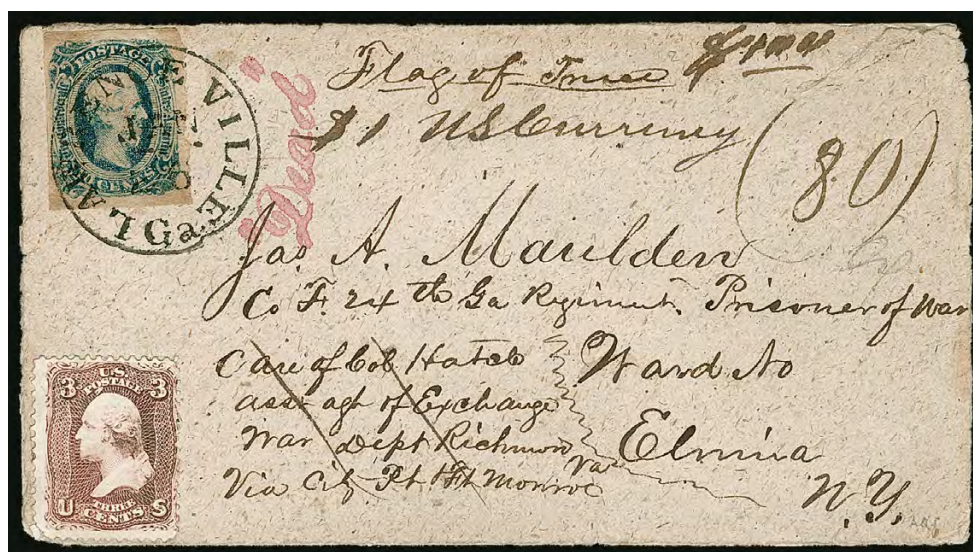 POSTAGE
CENTS
EVILLE Ga.
Flag of Truce
$1 US Currency
(80)
"Dead"
Jas A. Maulden
Co F. 24th Ga Regiment. Prisoner of War
Care of Col Hatch
asst agt of Exchange
War Dept Richmond Va
Via City Pt & Ft Monroe
Ward No
Elmira
N.Y.
3 U.S. 3
POSTAGE
U THREE S
CENTS